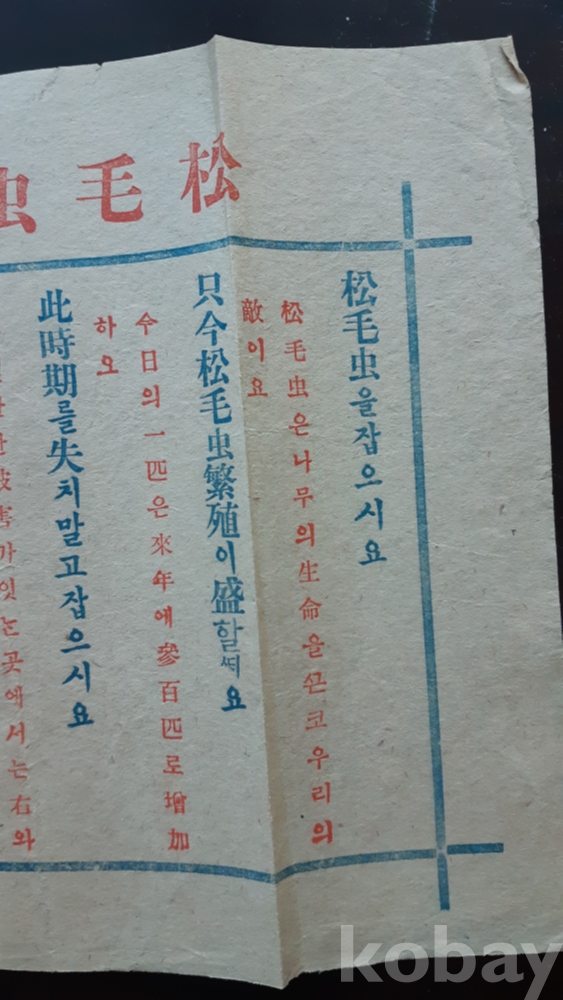 松毛虫
松毛虫을잡으시요
松毛虫은나무의生命을끈코우리의
敵이요
只今松毛虫繁殖이盛할때요
今日의一匹은來年에參百匹로增加
하오
此時期를失치말고잡으시요
한被害가잇는곳에서는右와
kobay